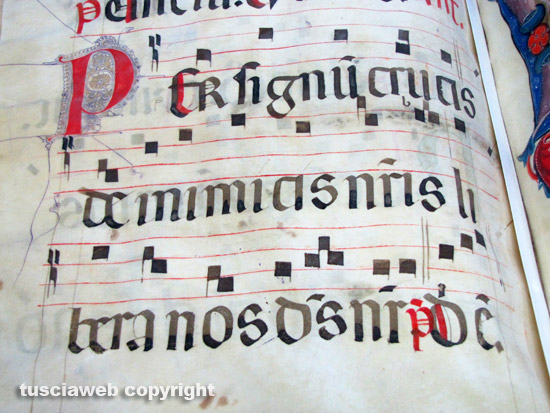 PER signū crucis
de inimicis nr̄is li
bera nos ds̄ nr̄ p̄s Dē
tusciaweb copyright